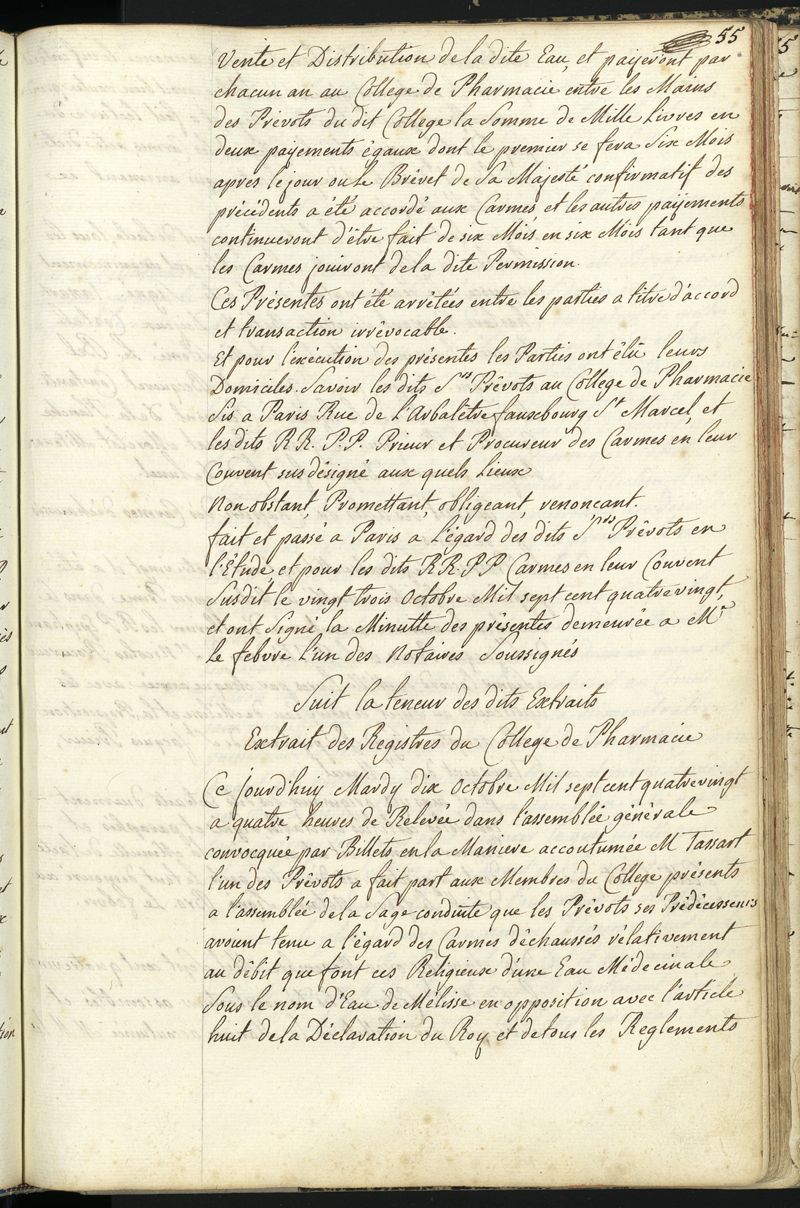 55
Vente et Distribution de la dite Eau, et payeront par
chacun an au College de Pharmacie entre les Mains
des Prevots du dit College la Somme de Mille Livres en
deux payements égaux dont le premier se fera Six Mois
apres le jour ou le Brévet de Sa Majesté confirmatif des
précédents a été accordé aux Carmes, et les autres payements
continueront d'être fait de six Mois en six Mois tant que
les Carmes jouiront de la dite Permission.
Ces Présentes ont été arrêtées entre les parties a titre d'accord
et transaction irrévocable.
Et pour l'exécution des présentes les Parties ont élû leurs
Domiciles. Savoir les dits Srs Prêvots au College de Pharmacie
Sis a Paris Rue de L'Arbalêtre fauxbourg St Marcel, et
les dits R.R. P.P. Prieur et Procureur des Carmes en leur
Couvent sus désigné aux quels Lieux
Non obstant, Promettant, obligeant, renoncant.
fait et passé a Paris a L'égard des dits Srs Prêvots en
l'Étude, et pour les dits R.R. P.P. Carmes en leur Couvent
Susdit le vingt trois Octobre Mil sept cent quatre vingt,
et ont Signé la Minutte des présentes demeurée a Me
Le febvre l'un des Notaires Soussignés
Suit la teneur des dits Extraits
Extrait des Registres du College de Pharmacie
Ce jourd'huy Mardy dix Octobre Mil sept cent quatre vingt
a quatre heures de Relevée dans l'assemblée générale
convocquée par Billets en la Maniere accoutumée M. Tassart
l'un des Prêvots a fait part aux Membres du College présents
a l'assemblée de la Sage conduite que les Prévots ses Prédécesseurs
avoient tenue a l'égard des Carmes déchaussés rélativement
au débit que font ces Religieux d'une Eau Médecinale
Sous le nom d'Eau de Mélisse en opposition avec l'article
huit de la Déclaration du Roy et de tous les Reglements